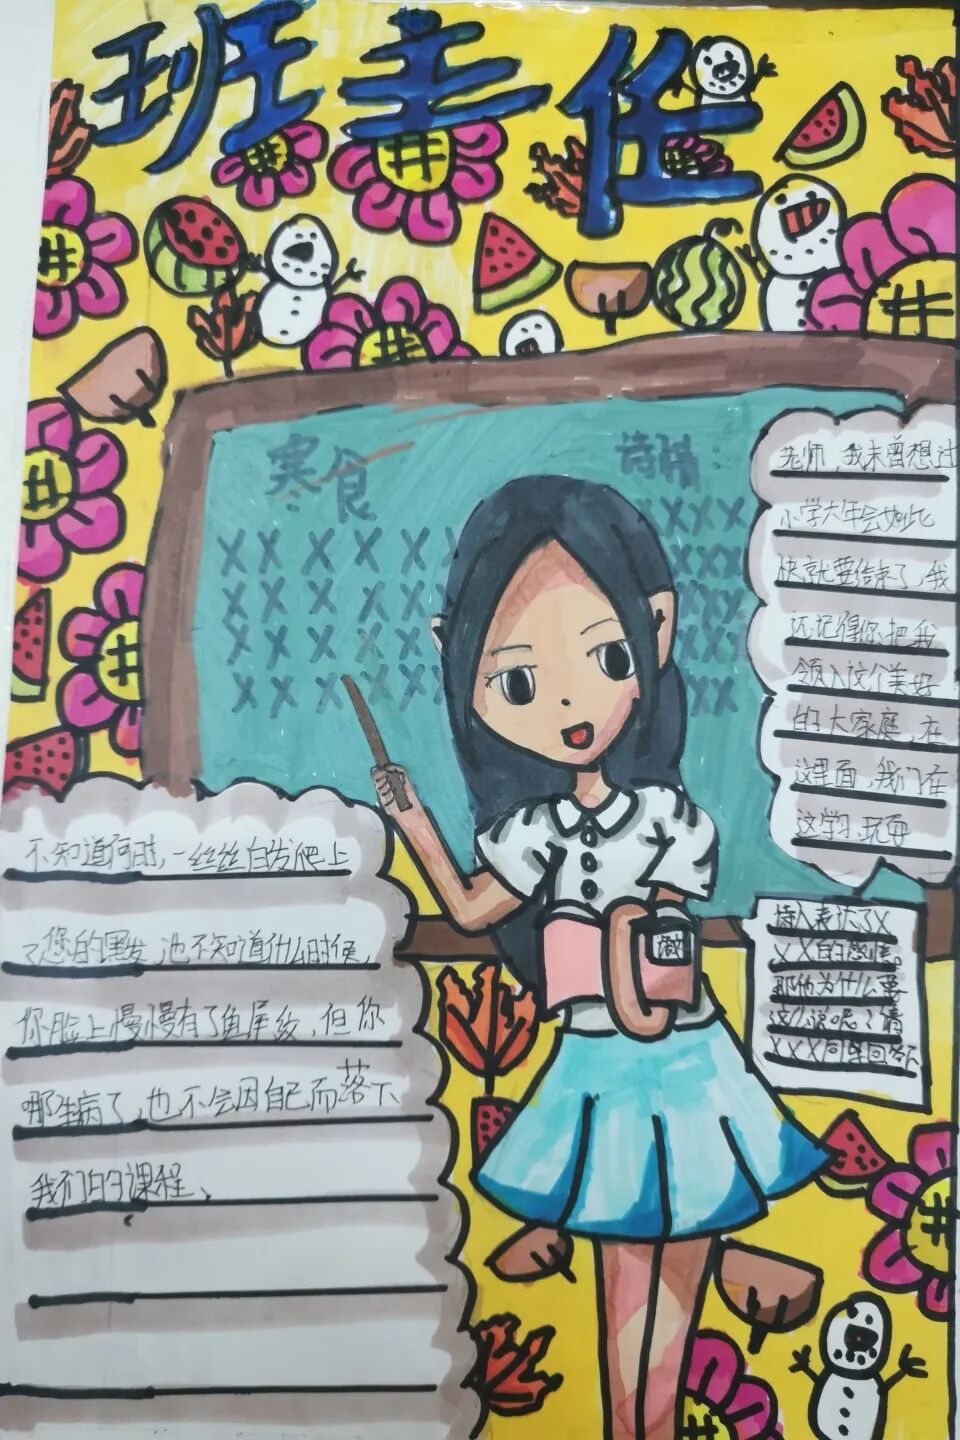 班主任
寒食
诗情：
XXXXX XXX
XXXXX XXX
XXXXX XXX
XXXXX XX
老师，我未曾想过
小学六年会如此
快就要结束了，我
还记得你把我
领入这个美好
的大家庭，在
这里面，我们在
这学习.玩每
不知道何时，一丝丝白发爬上
了您的黑发，也不知道什么时候，
你脸上慢慢有了鱼尾纹，但你
哪生病了，也不会因自己而落下
我们的课程、
诗人表达了X
XX的感情。
那他为什么要
这么说呢？请
XXX同学回答。